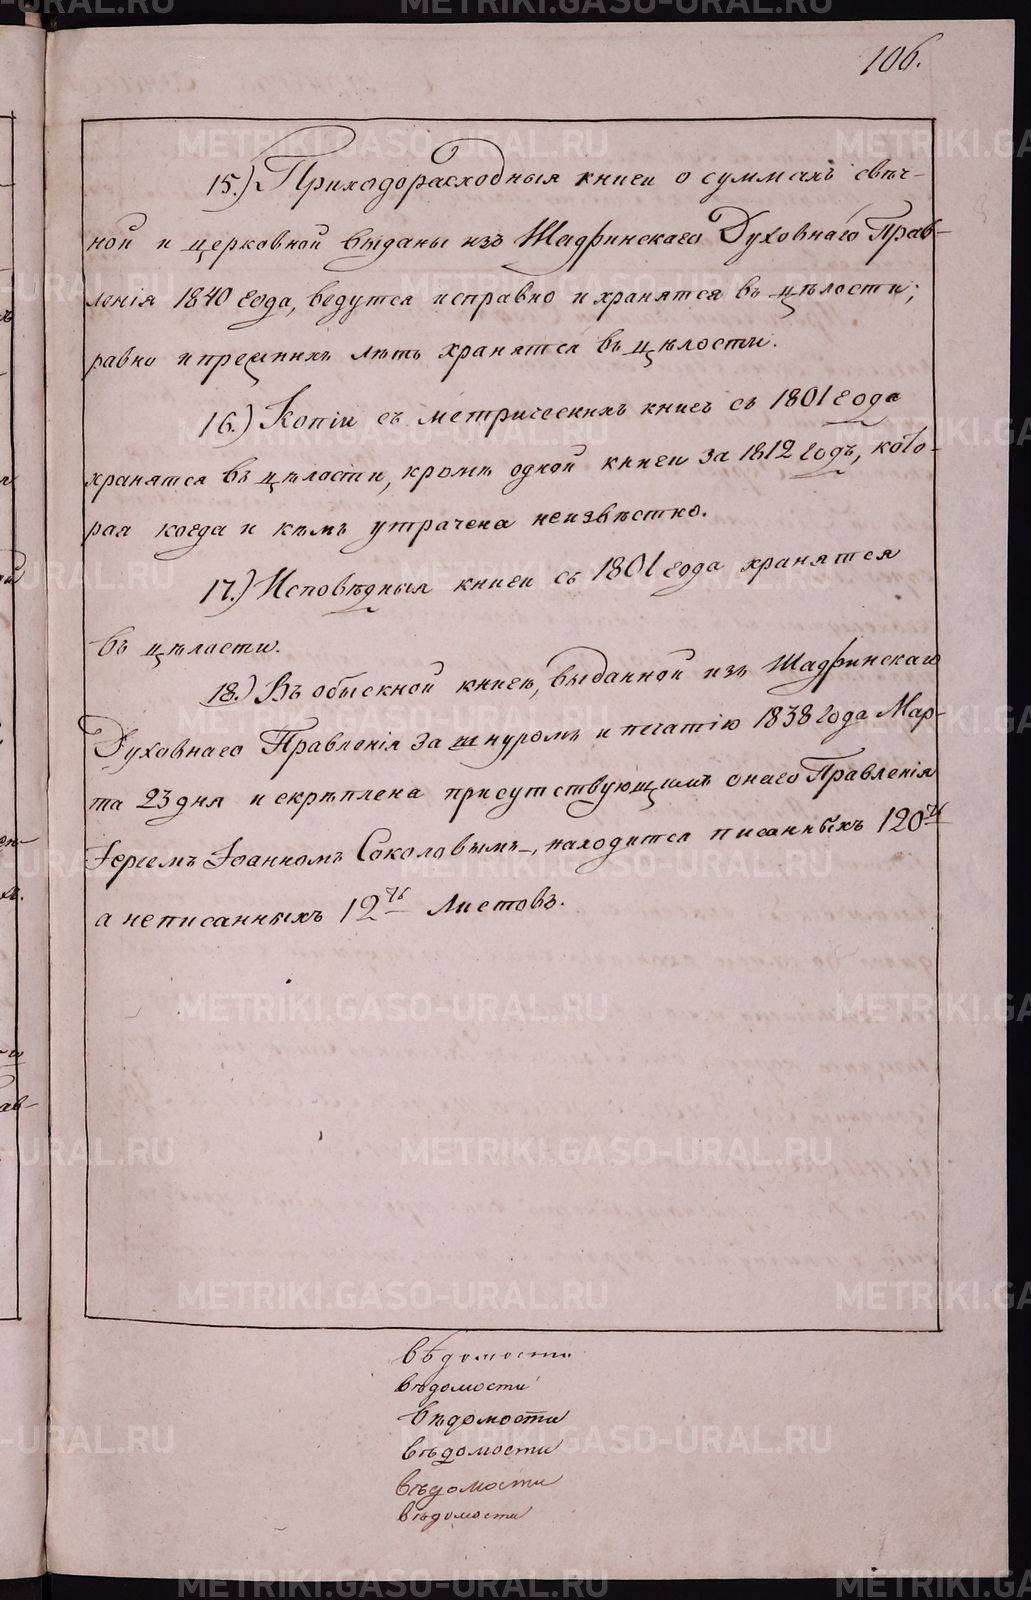 106.
15.) Приходорасходныя книги о суммахъ свѣч-
ной и церковной выданы изъ Шадринскаго Духовнаго Прав-
ленія 1840 года, ведутся исправно и хранятся въ цѣлости;
равно и прежнихъ лѣтъ хранятся въ цѣлости.
16.) Копіи съ метрическихъ книгъ съ 1801 года
хранятся въ цѣлости, кромѣ одной книги за 1812 годъ, кото-
рая когда и кѣмъ утрачена неизвѣстно.
17.) Исповѣдныя книги съ 1801 года хранятся
въ цѣлости.
18.) Въ обыскной книгѣ, выданной изъ Шадринскаго
Духовнаго Правленія за шнуромъ и печатію 1838 года Мар-
та 23 дня и скрѣплена присутствующимъ онаго Правленія
Іереемъ Іоанномъ Соколовымъ, находится писанныхъ 120ть
а неписанныхъ 12ть листовъ.
вѣдомости
вѣдомости
вѣдомости
вѣдомости
вѣдомости
вѣдомости
METRIKI.GASO-URAL.RU